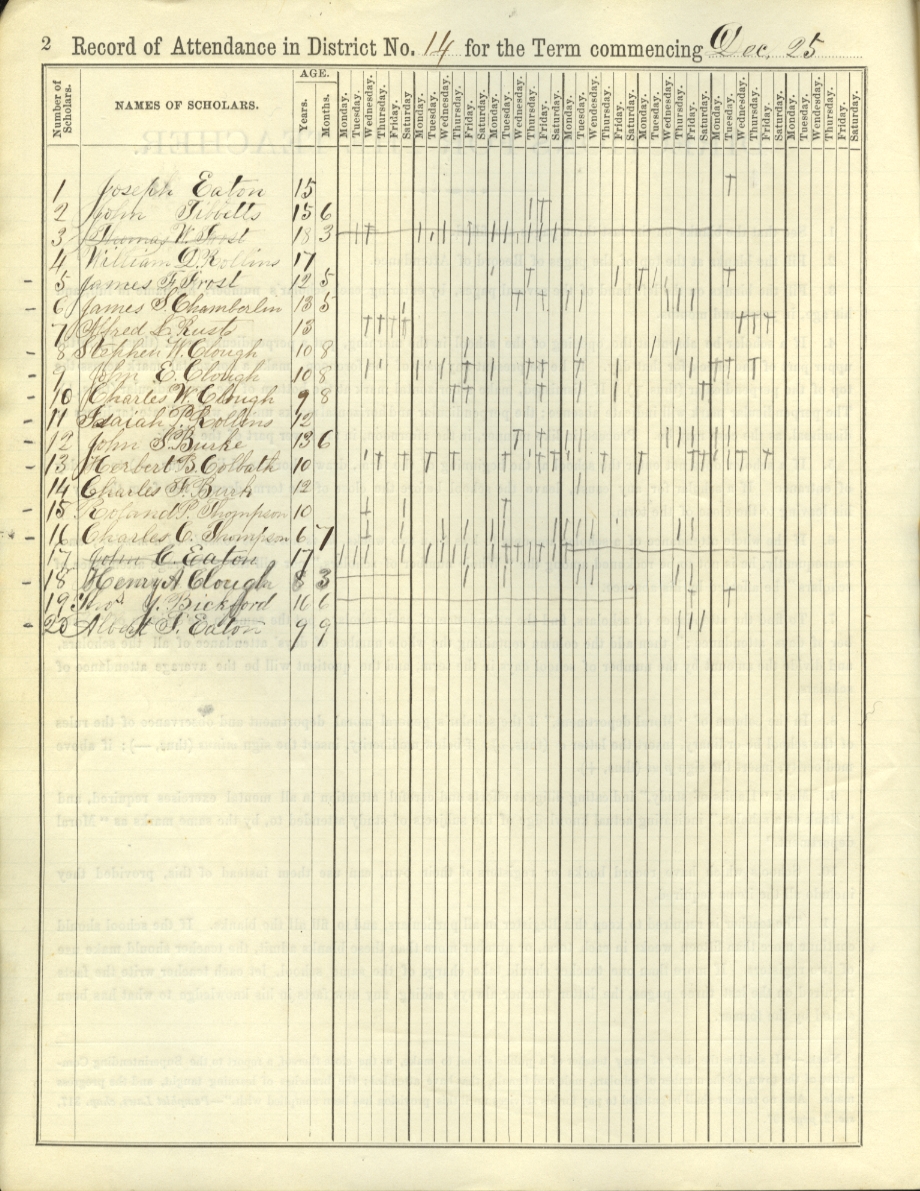 2 Record of Attendance in District No. 14 for the Term commencing Dec. 25
Number of Scholars. NAMES OF SCHOLARS. AGE. Years. Months. Monday. Tuesday. Wednesday. Thursday. Friday. Saturday Monday. Tuesday. Wednesday. Thursday. Friday. Saturday Monday. Tuesday. Wednesday. Thursday. Friday. Saturday. Monday. Tuesday. Wednesday. Thursday. Friday. Saturday. Monday. Tuesday. Wednesday. Thursday. Friday. Saturday. Monday. Tuesday. Wednesday. Thursday. Friday. Saturday. Monday. Tuesday. Wednesday. Thursday. Friday. Saturday.
1 Joseph Eaton 15
2 John Tibbetts 15 6
3 Thomas W. Frost 18 3
4 William D. Rollins 17
5 James F. Frost 12 5
6 James S. Chamberlin 13 5
7 Alfred L. Rust 13
8 Stephen W. Clough 10 8
9 John E. Clough 10 8
10 Charles W. Clough 9 8
11 Isaiah P. Rollins 12
12 John S. Burke 13 6
13 Herbert B. Colbath 10
14 Charles F. Burk 12
15 Roland P. Thompson 10
16 Charles C. Thompson 6 7
17 John C. Eaton 17
18 Henry A Clough 8 3
19 Y. Bickford 16 6
20 Albert S. Eaton 9 9